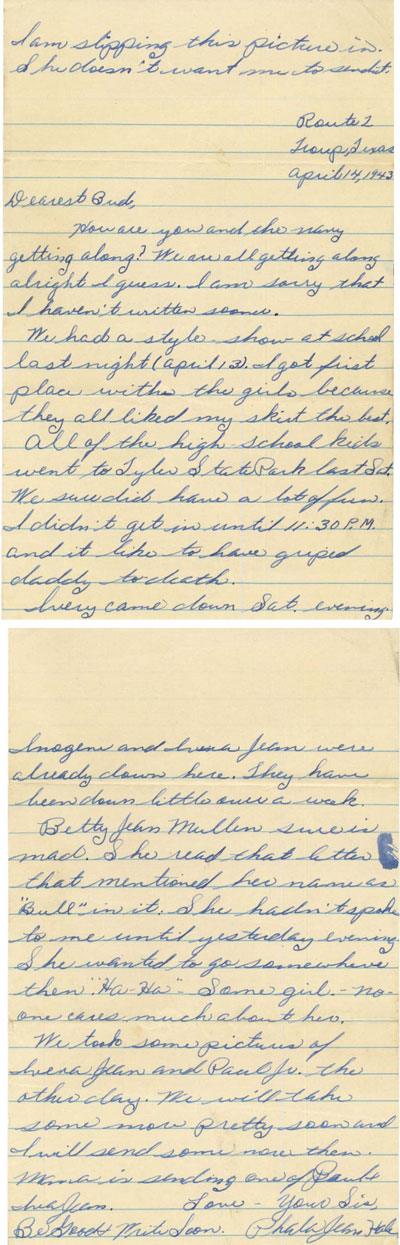 I am slipping this picture in.
She doesn't want me to send it.
Route 2
Troup, Texas
April 14, 1943
Dearest Bud,
How are you and the navy
getting along? We are all getting along
alright I guess. I am sorry that
I haven't written sooner.
We had a style show at school
last night (April 13). I got first
place with the girls because
they all liked my skirt the best.
All of the high school kids
went to Tyler State Park last Sat.
We sure did have a lot of fun.
I didn't get in until 11:30 P.M.
and it like to have griped
daddy to death.
Ivery came down Sat. evening.
Inogene and Ivera Jean were
already down here. They have
been down little over a week.
Betty Jean Mullen sure is
mad. She read that letter
that mentioned her name as
"Bull" in it. She hadn't spoke
to me until yesterday evening.
She wanted to go somewhere
then "Ha-Ha" - Some girl. - no-
one cares much about her.
We took some pictures of
Ivera Jean and Paul Jr. the
other day. We will take
some more pretty soon and
I will send some more then.
Mama is sending one of Paul &
Iva Jean. Love - Your Sis
Be Good & Write Soon. Phala Jean